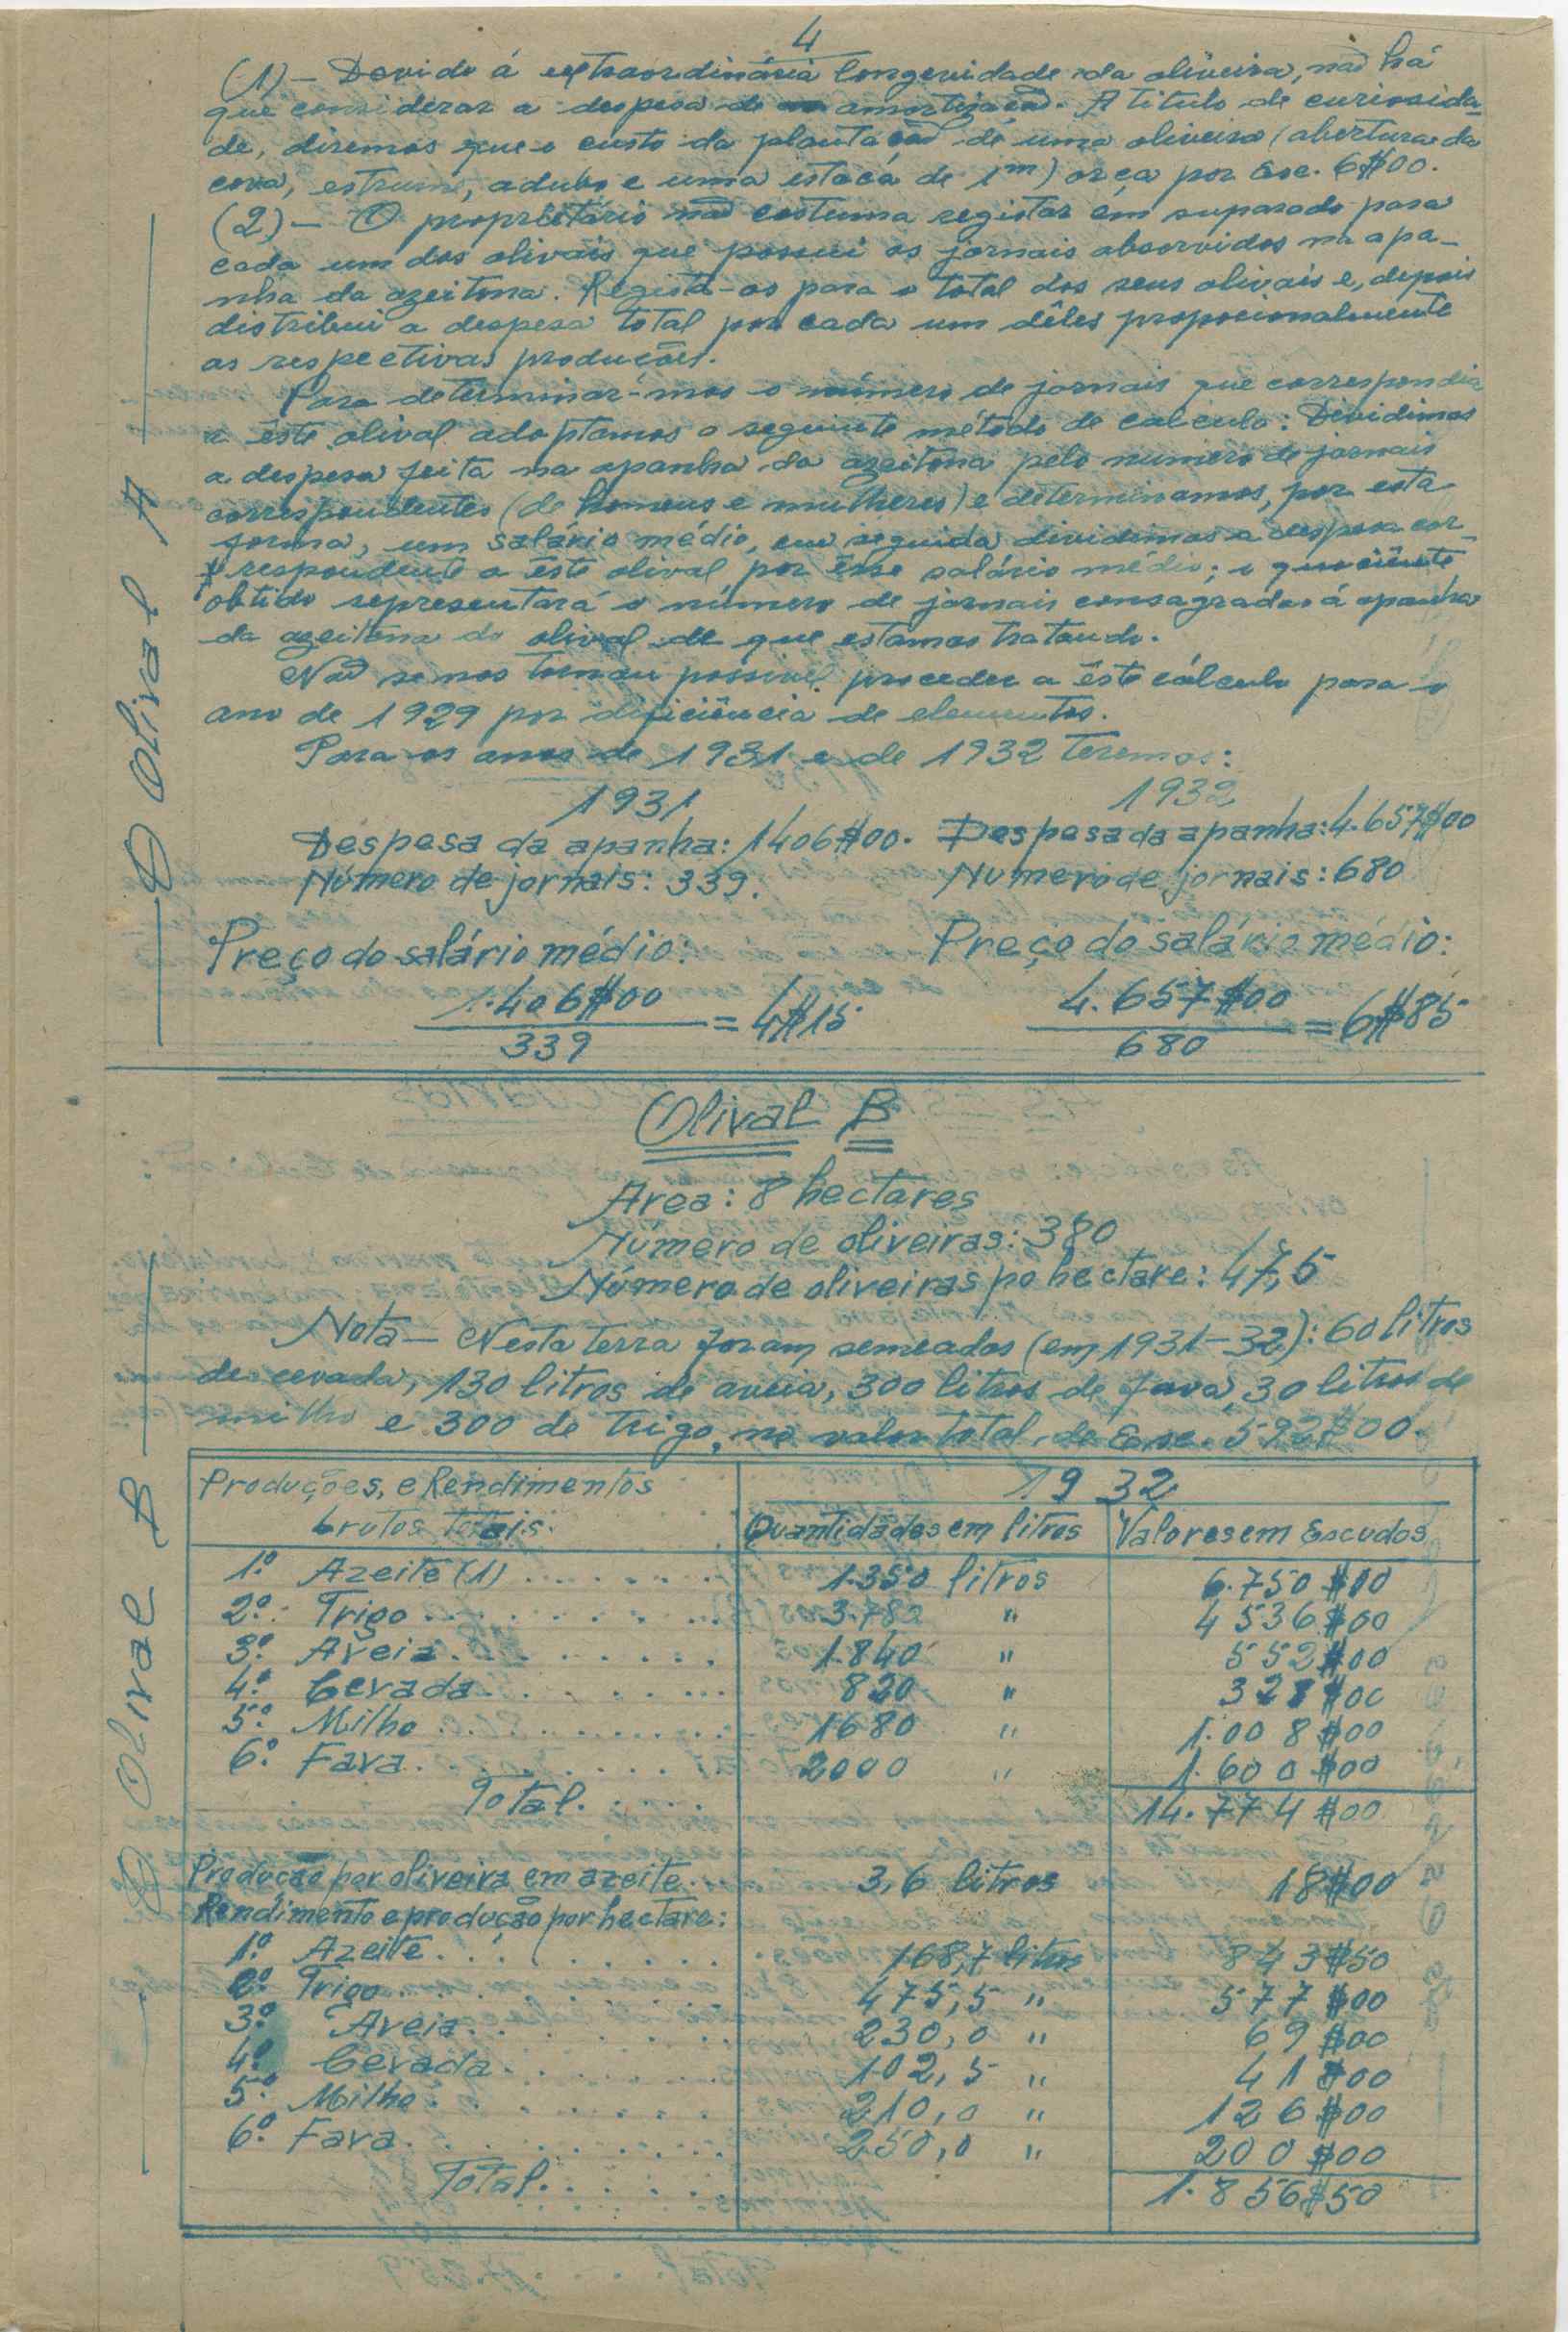 4
(1) — Devido á extraordinária longevidade da oliveira, não há
que considerar a despesa de amortização. A titulo de curiosida-
de, diremos que o custo da plantação de uma oliveira (abertura da
cova, estrume, adubo e uma estaca de 1m) orça por Esc. 6$00.
(2) — O proprietário não costuma registar em separado para
cada um dos olivais que possui os jornais absorvidos na apa-
nha da azeitona. Regista-os para o total dos seus olivais e, depois
distribui a despesa total por cada um dêles propocionalmente
as respectivas produções.
Para determinar-mos o número de jornais que correspondia
a êste olival adoptamos o seguinte método de calculo: Dividimos
a despesa feita na apanha da azeitona pelo numero de jornais
correspondentes (de homens e mulheres) e determinamos, por esta
forma, um salário médio, em seguida dividimos a despesa cor-
respondente a êste olival por êsse salário médio; o quociente
obtido representará o número de jornais consagrados á apanha
da azeitona do olival de que estamos tratando.
Não se nos tornou possivel proceder a êste cálculo para o
ano de 1929 por dificiência de elementos.
Para os anos de 1931 e de 1932 teremos:
1931 1932
Despesa da apanha: 1406$00. Despesa da apanha: 4.657$00
Número de jornais: 339. Numero de jornais: 680
Preço do salário médio: Preço do salário médio:
1.406$00 / 339 = 4$15 4.657$00 / 680 = 6$85
O Olival A
Olival B
Area: 8 hectares
Número de oliveiras: 380
Número de oliveiras po hectare: 47,5
Nota — Nesta terra foram semeados (em 1931-32): 60 litros
de cevada, 130 litros de aveia, 300 litros de fava, 30 litros de
milho e 300 de trigo, no valor total de Esc. 592$00.
O Olival B
Produções, e Rendimentos 1932
brutos totais: Quantidades em litros Valores em Escudos
1.º Azeite (1) ........ 1.350 litros 6.750$00
2.º Trigo ........ 3.780 " 4536$00
3.º Aveia ........ 1.840 " 552$00
4.º Cevada ........ 820 " 328$00
5.º Milho ........ 1680 " 1.008$00
6.º Fava ........ 2000 " 1.600$00
Total. .... 14.774$00
Produção por oliveira em azeite. 3,6 litros 18$00
Rendimento e produção por hectare:
1.º Azeite ........ 168,7 litros 843$50
2.º Trigo ........ 475,5 " 577$00
3.º Aveia ........ 230,0 " 69$00
4.º Cevada ........ 102,5 " 41$00
5.º Milho ........ 210,0 " 126$00
6.º Fava ........ 250,0 " 200$00
Total ...... 1.856$50